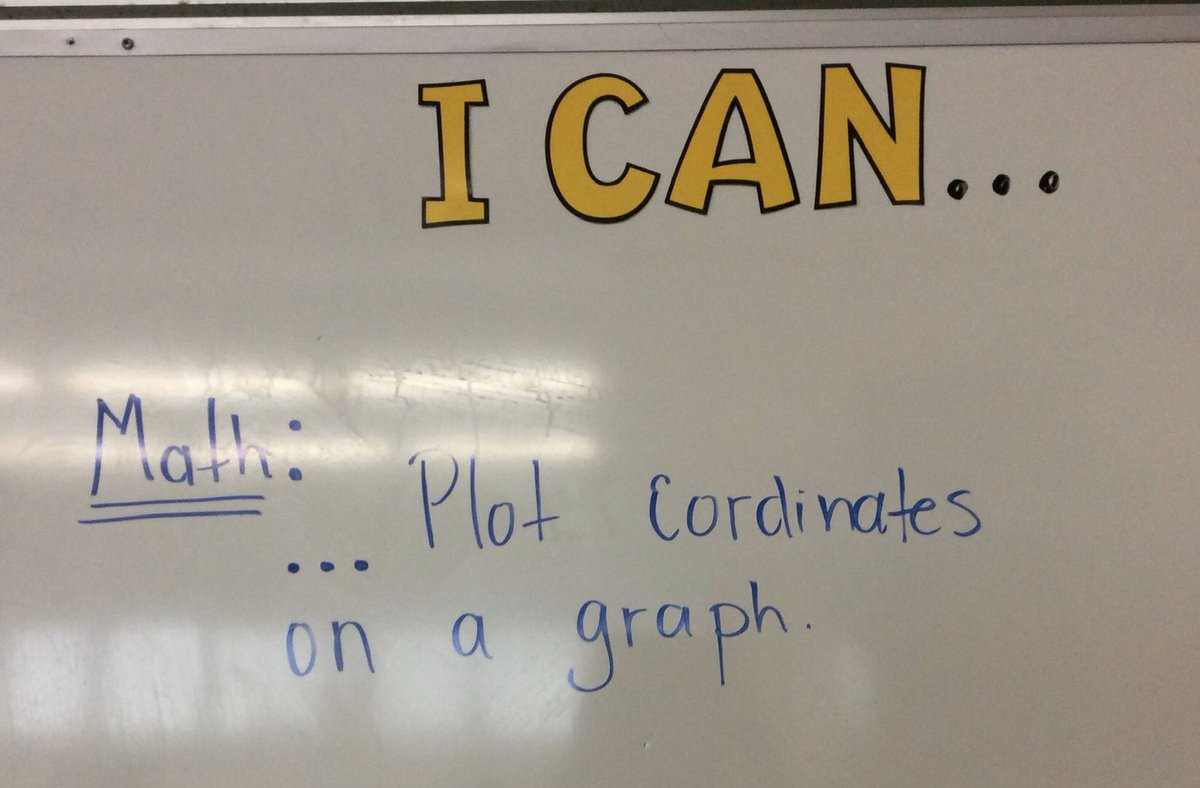 I CAN...
Math:
... Plot Cordinates
on a graph.